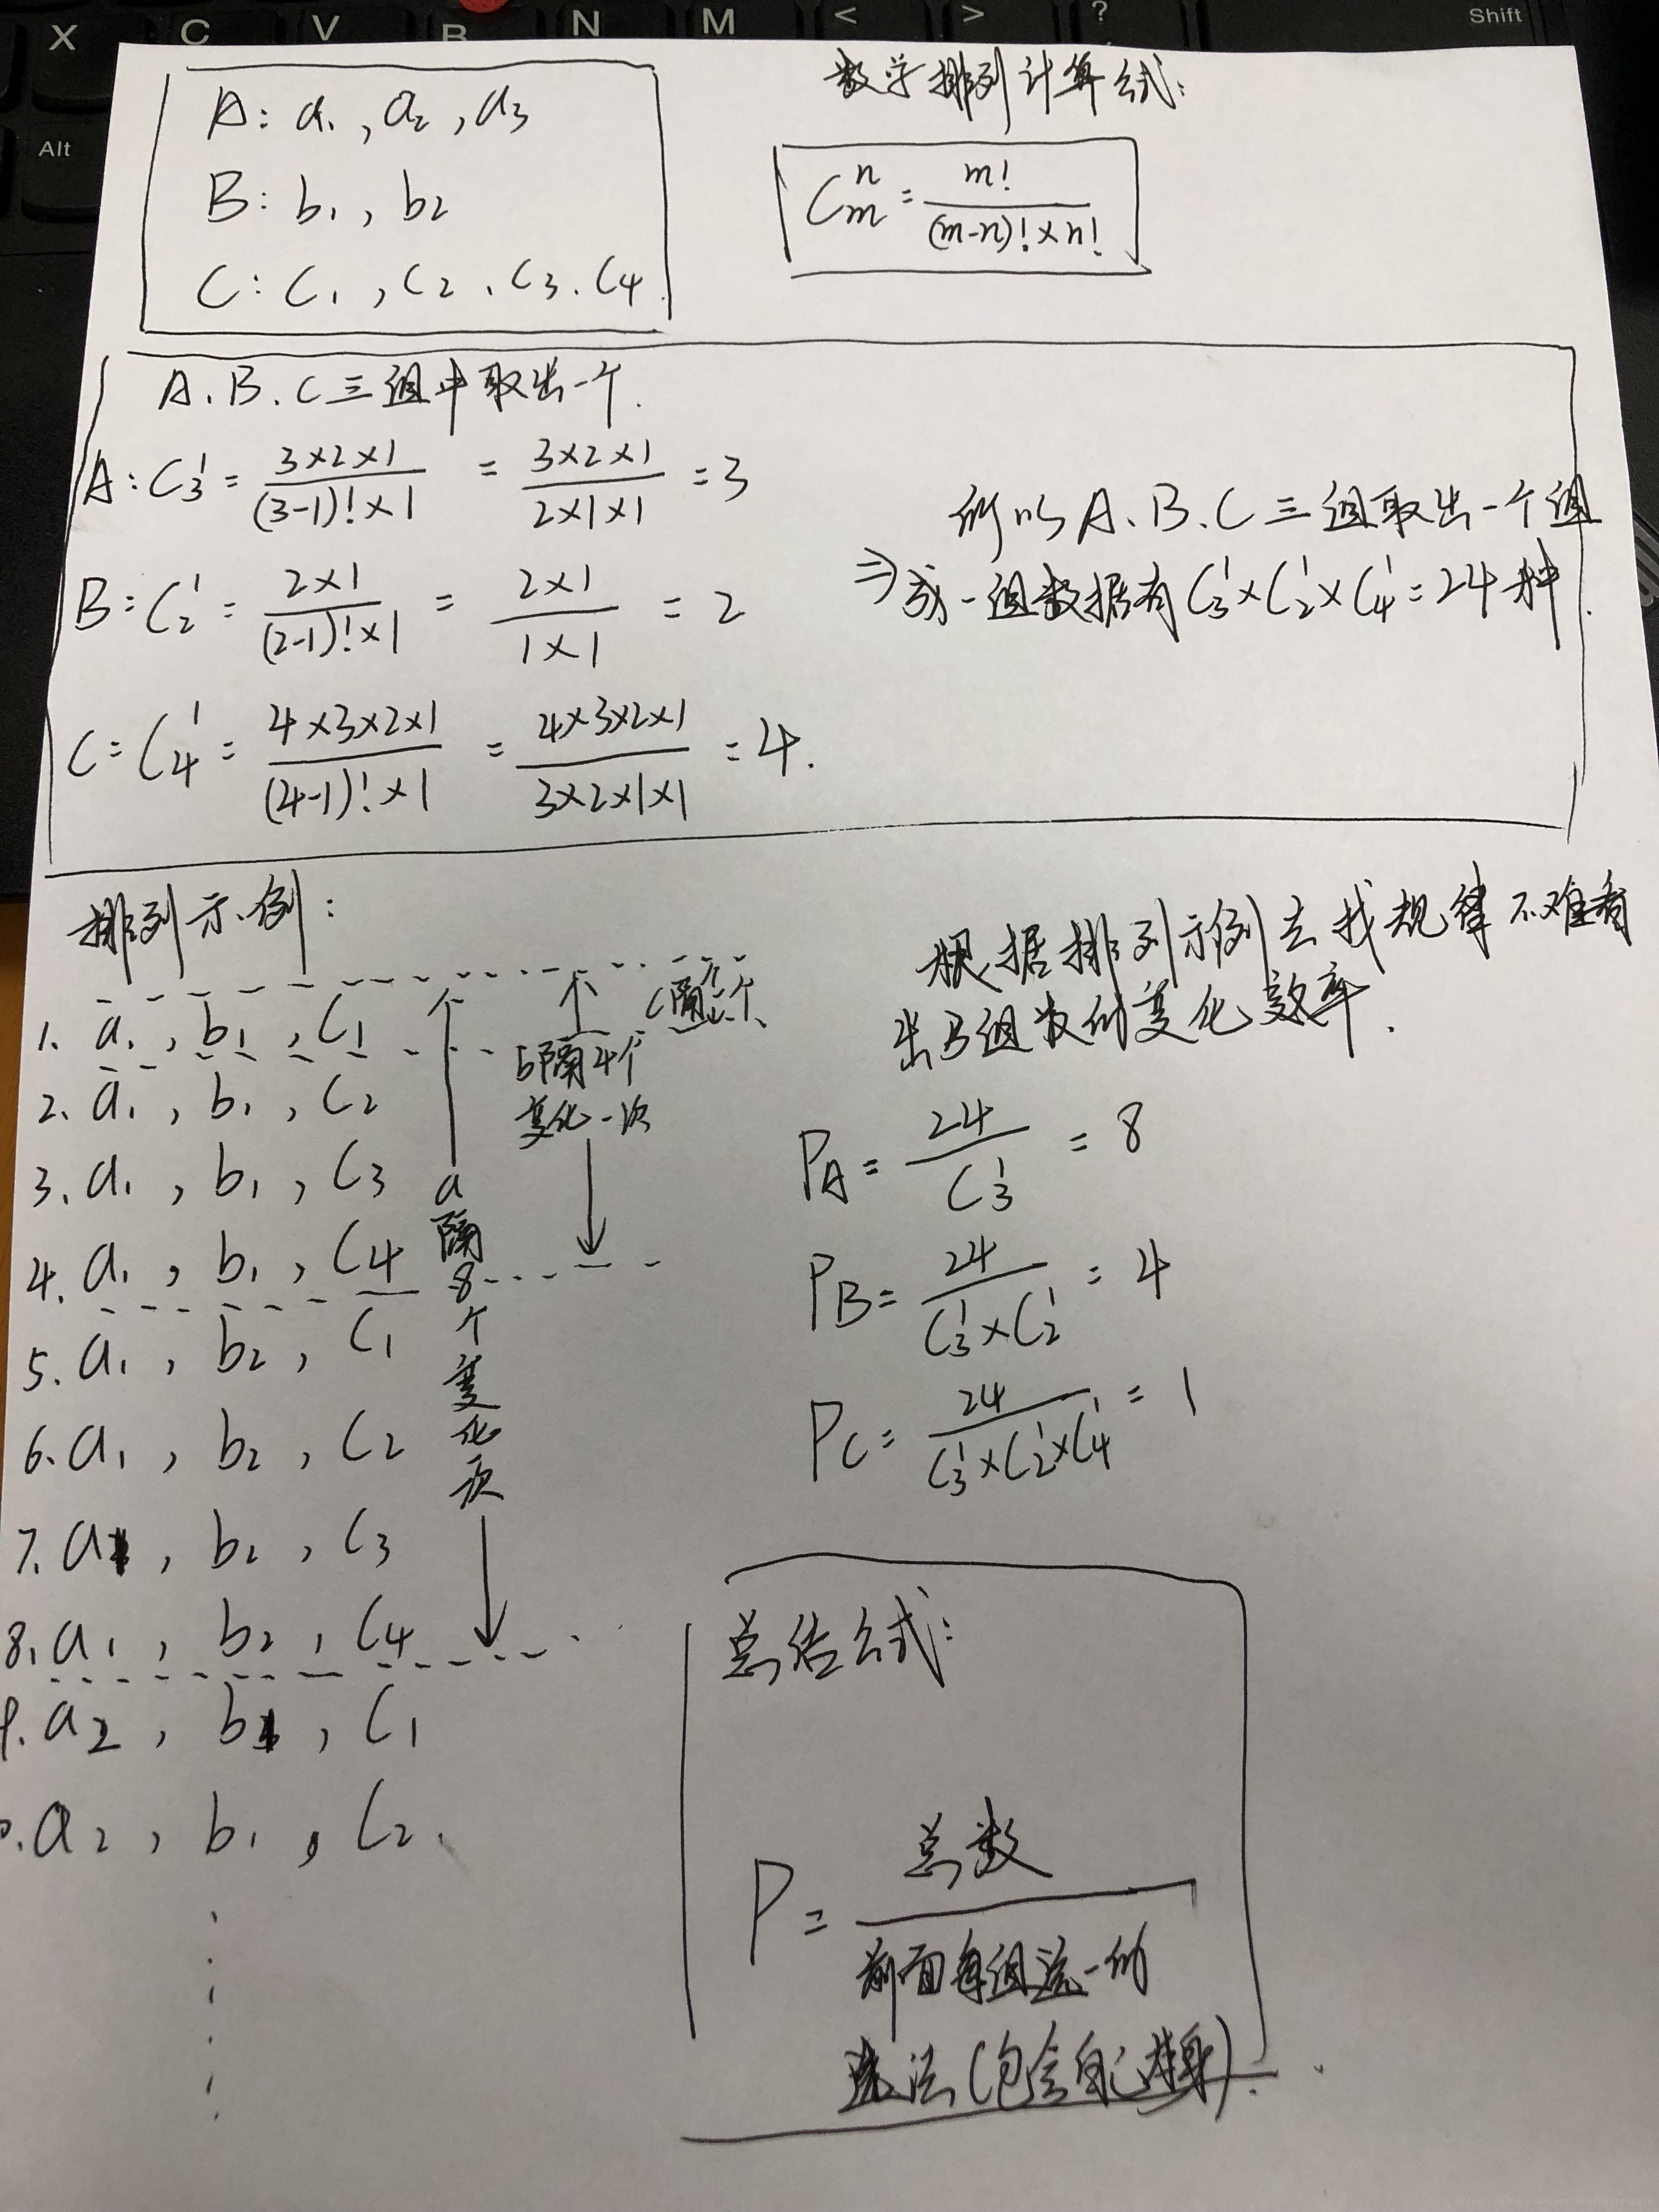 X C V B N M < > ? Shift
Alt
A: a₁, a₂, a₃
B: b₁, b₂
C: C₁, C₂、C₃、C₄
数学排列计算公式:
Cₘⁿ = m! / ((m-n)! × n!)
A、B、C三组中取出一个.
A: C₃¹ = (3×2×1) / ((3-1)!×1) = (3×2×1) / (2×1×1) = 3
B: C₂¹ = (2×1) / ((2-1)!×1) = (2×1) / (1×1) = 2
C: C₄¹ = (4×3×2×1) / ((4-1)!×1) = (4×3×2×1) / (3×2×1×1) = 4.
所以A、B、C三组取出一个组
⇒ 成一组数据有C₃¹×C₂¹×C₄¹=24种.
排列示例:
1. a₁, b₁, C₁
2. a₁, b₁, C₂
3. a₁, b₁, C₃
4. a₁, b₁, C₄
5. a₁, b₂, C₁
6. a₁, b₂, C₂
7. a₁, b₂, C₃
8. a₁, b₂, C₄
9. a₂, b₁, C₁
0. a₂, b₁, C₂.
a隔8个变化一次
b隔4个
变化一次
C隔
个
根据排列示例去找规律不难看
出每组数的变化效率.
P_A = 24 / C₃¹ = 8
P_B = 24 / (C₃¹×C₂¹) = 4
P_C = 24 / (C₃¹×C₂¹×C₄¹) = 1
总结公式:
P = 总数 /
前面每组选一的
选法(包含自己本身).